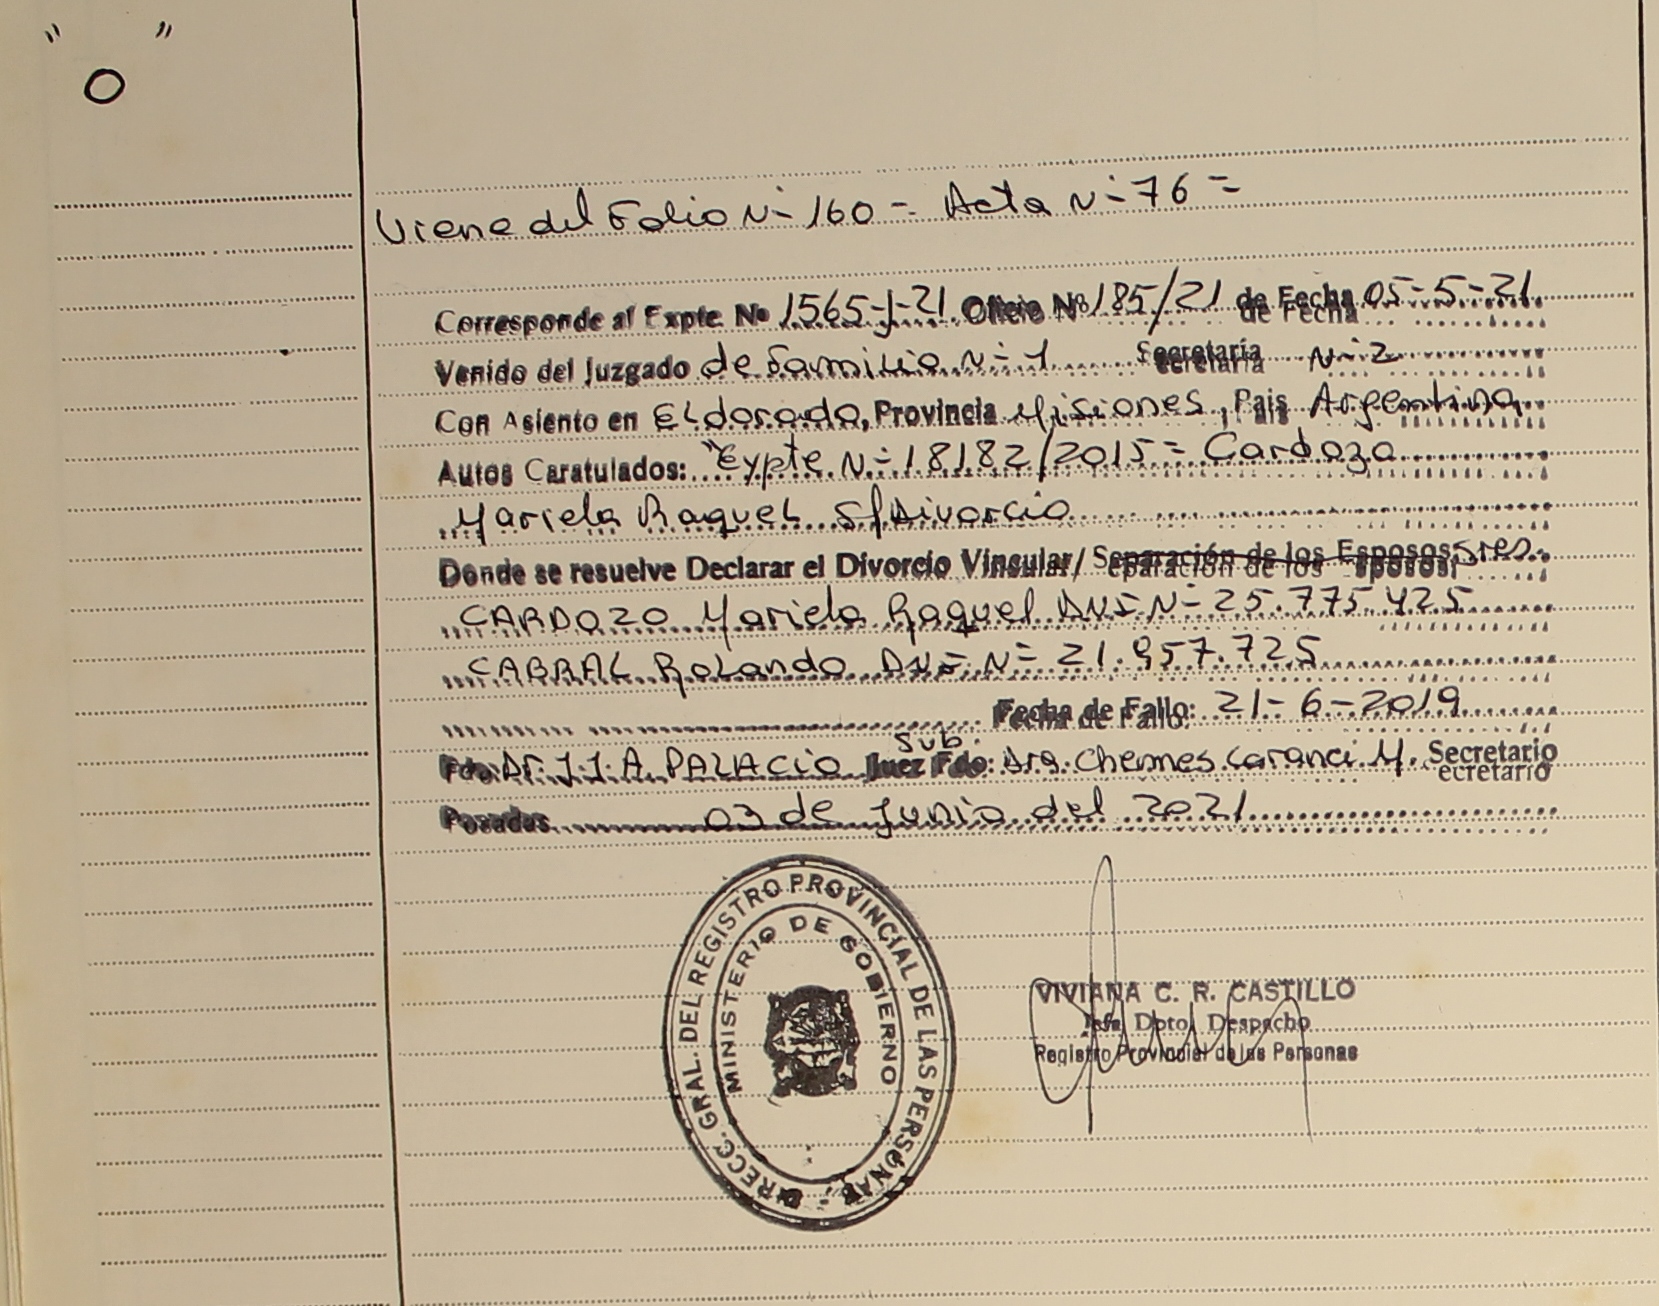 " "
O
Viene del Folio N- 160 - Acta N- 76 =
Corresponde al Expte Nº 1565-J-21 Oficio Nº 185/21 de Fecha 05-5-21
Venido del Juzgado de Familia N- 1 Secretaría N- 2
Con Asiento en Eldorado, Provincia Misiones, Pais Argentina
Autos Caratulados: "Expte N- 18182/2015 = Cardozo
Mariela Raquel S/Divorcio
Donde se resuelve Declarar el Divorcio Vincular/ Separación de los Esposos: Sres.
CARDOZO Mariela Raquel DNI N- 25.775.425
CABRAL Rolando DNI N= 21.957.725
Fecha de Fallo: 21-6-2019
Sub.
Fdo: Dr. J.J.A. PALACIO Juez Fdo: Dra. Chemes Caranci M. Secretario
Posadas 03 de Junio del 2021
DIRECC. GRAL. DEL REGISTRO PROVINCIAL DE LAS PERSONAS
MINISTERIO DE GOBIERNO
VIVIANA C. R. CASTILLO
Jefe Dpto. Despacho
Registro Provincial de las Personas